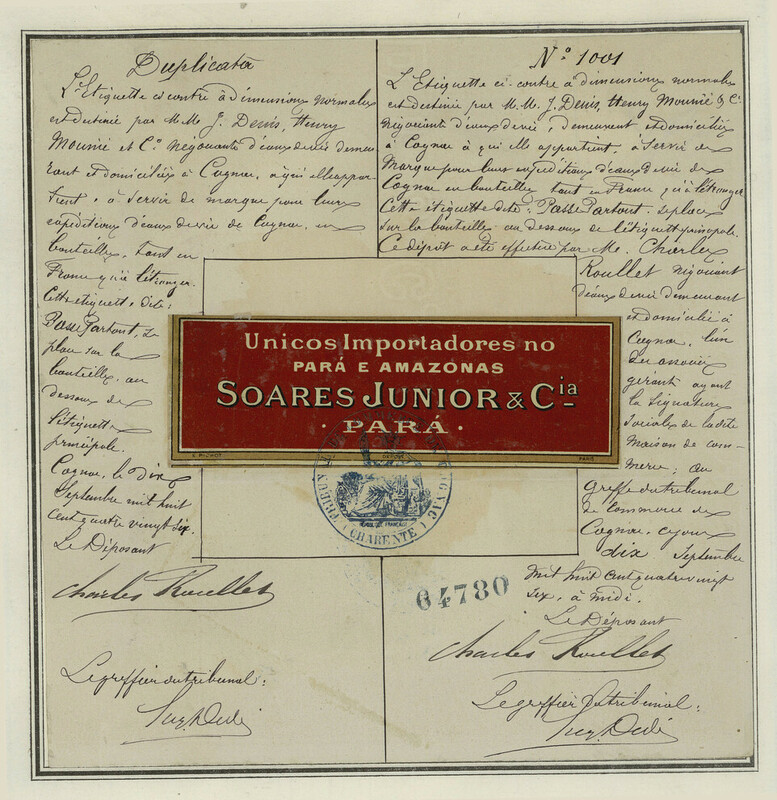 Duplicata
L'Etiquette ci contre à dimensions normales
est destinée par M.M. J. Denis, Henry
Mounié et Co. négociants d'eaux de vie demeu
rant et domiciliés à Cognac, à qui elle appar
tient, à servir de marque pour leurs
expéditions d'eaux de vie de Cognac, en
bouteilles, tant en
France qu'à l'étranger.
Cette étiquette, dite:
Passe Partout, se
place sur la
bouteille, au
dessous de
l'étiquette
principale.
Cognac, le dix
Septembre mil huit
cent quatre vingt six.
Le Déposant
Charles Roullet
Le greffier du tribunal:
No. 1001
L'Etiquette ci-contre à dimensions normales
est destinée par M.M. J. Denis, Henry Mounié & Cie.
Négociants d'eaux de vie, demeurant et domiciliés
à Cognac à qui elle appartient, à Servir de
Marque pour leurs expéditions d'eaux de vie de
Cognac en bouteilles tant en France qu'à l'étranger
Cette étiquette dite: Passe Partout. Se place
Sur la bouteille au dessous de l'étiquette principale.
Ce dépôt a été effectué par M. Charles
Roullet négociant
d'eaux de vie demeurant
et domicilié à
Cognac, l'un
des associés
gérant ayant
la Signature
Sociale de la dite
Maison de com-
merce; au
Greffe du tribunal
de Commerce de
Cognac, ce jour
dix Septembre
mil huit cent quatre vingt
six, à midi.
Le Déposant
Charles Roullet
Le greffier du tribunal:
Unicos Importadores no
PARÁ E AMAZONAS
SOARES JUNIOR & Cia
· PARÁ ·
DÉPOSÉ
PARIS
COGNAC
(CHARENTE)
64780